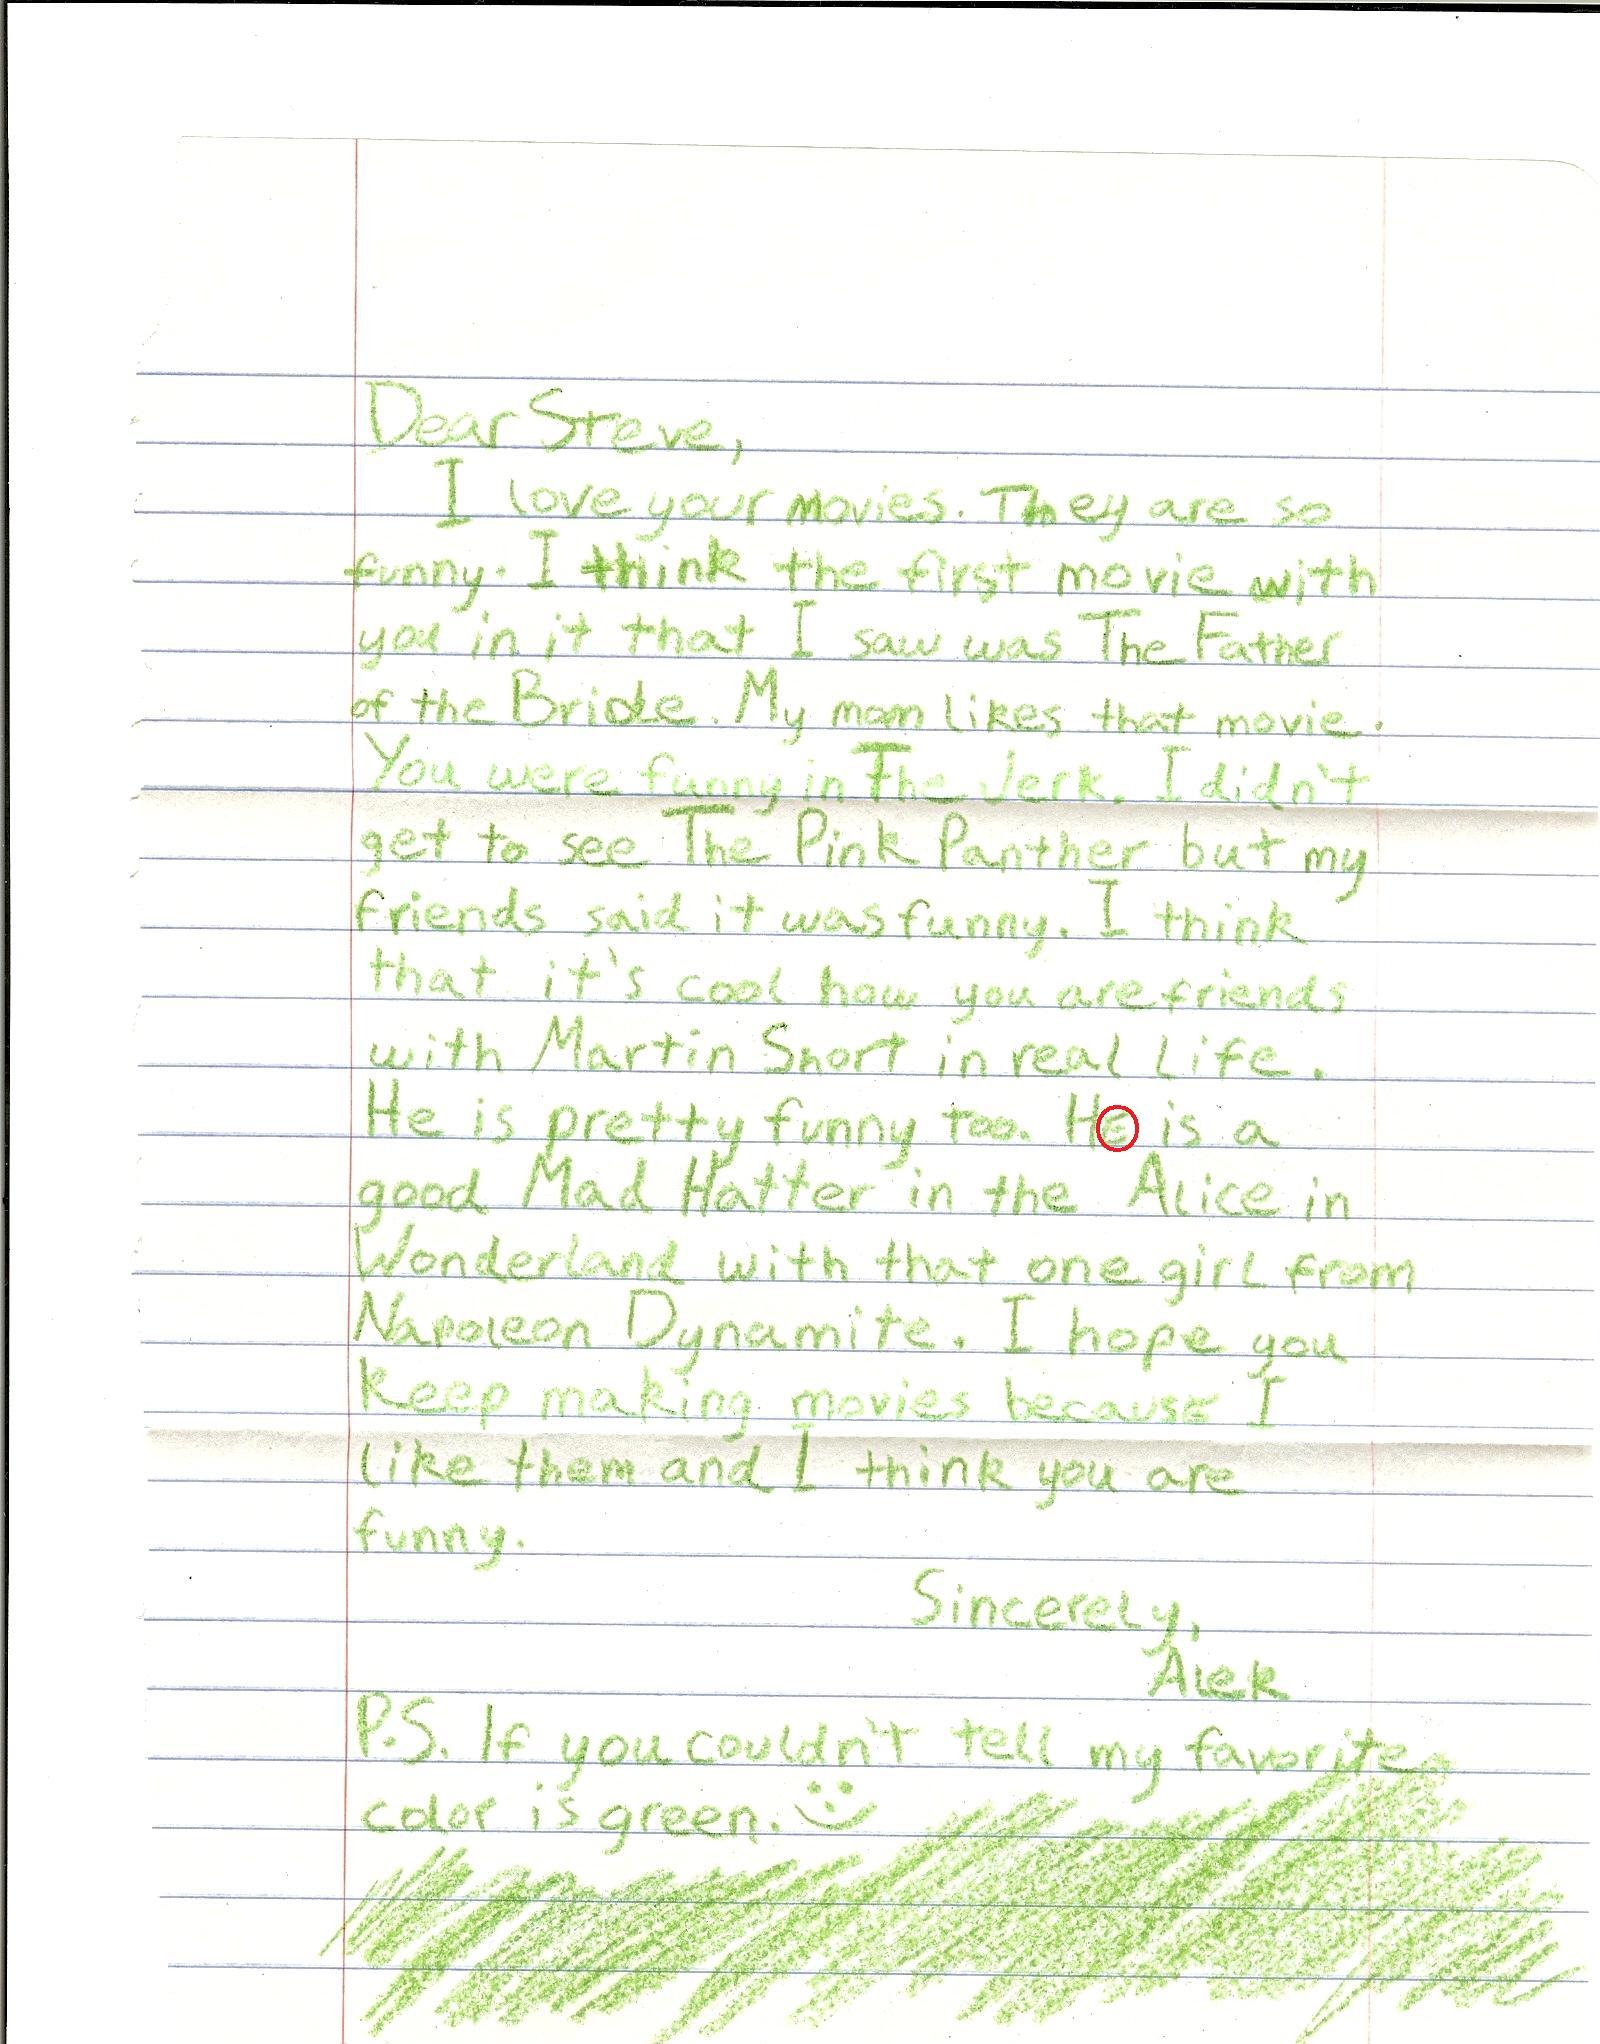 Dear Steve,
I love your movies. They are so
funny. I think the first movie with
you in it that I saw was The Father
of the Bride. My mom likes that movie.
You were funny in The Jerk. I didn't
get to see The Pink Panther but my
friends said it was funny. I think
that it's cool how you are friends
with Martin Short in real Life.
He is pretty funny too. He is a
good Mad Hatter in the Alice in
Wonderland with that one girl from
Napoleon Dynamite. I hope you
keep making movies because I
like them and I think you are
funny.
Sincerely,
Alek
P.S. If you couldn't tell my favorite
color is green.